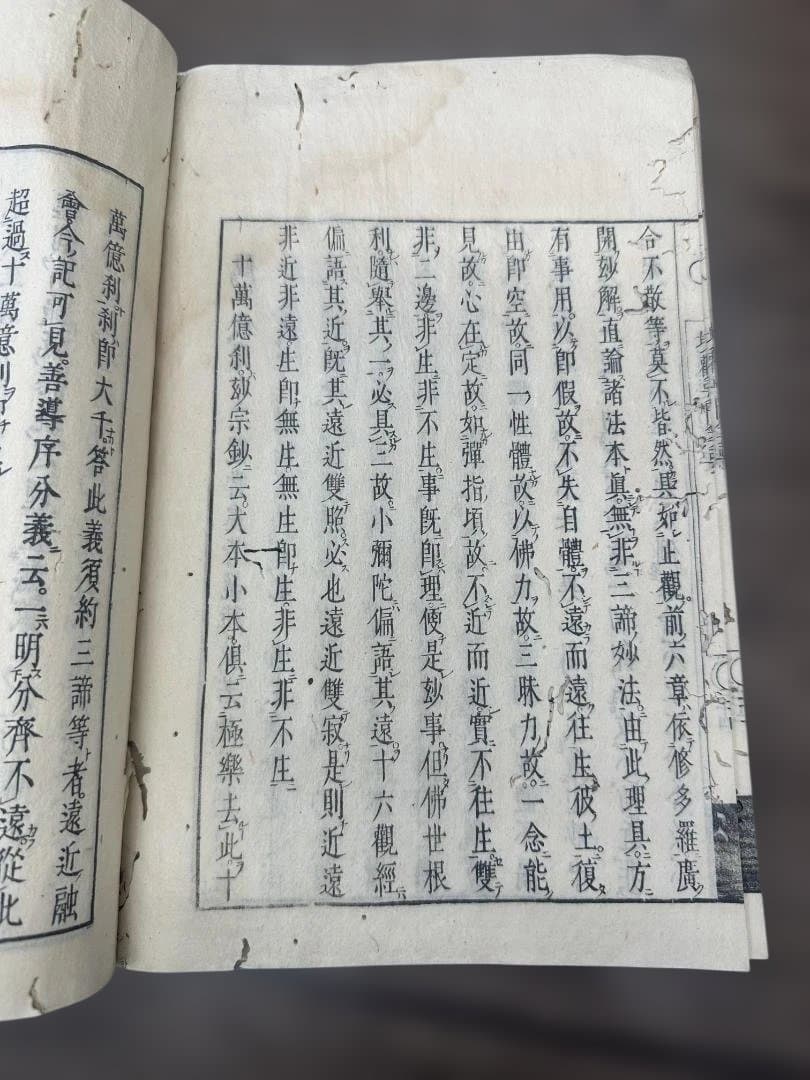 合不敢等莫不皆然具如止觀。前六章依修多羅廣
開妙解直論諸法本眞無非三諦妙法。由此理具。方
有事用。以即假故。不失自體。不遠而遠。往生彼土。復
由即空故。同一性體故。以佛力故。三昧力故。一念能
見故。心在定故。如彈指頃故。不近而近。實不往生。雙
非二邊。非生非不生。事既即理。便是玅事。但佛世根
利。隨舉其一。必具二故。小彌陀偏語其遠。十六觀經
偏語其近。既其遠近雙照。必也遠近雙寂。是則近遠
非近非遠。生即無生。無生即生。非生非不生
十萬億刹。玅宗鈔云。大本小本。俱云極樂去此十
萬億刹。刹即大千。答此義須約三諦等者。遠近融
會。今記可見。善導序分義云。一明分齊不遠。從此
超過十萬億刹